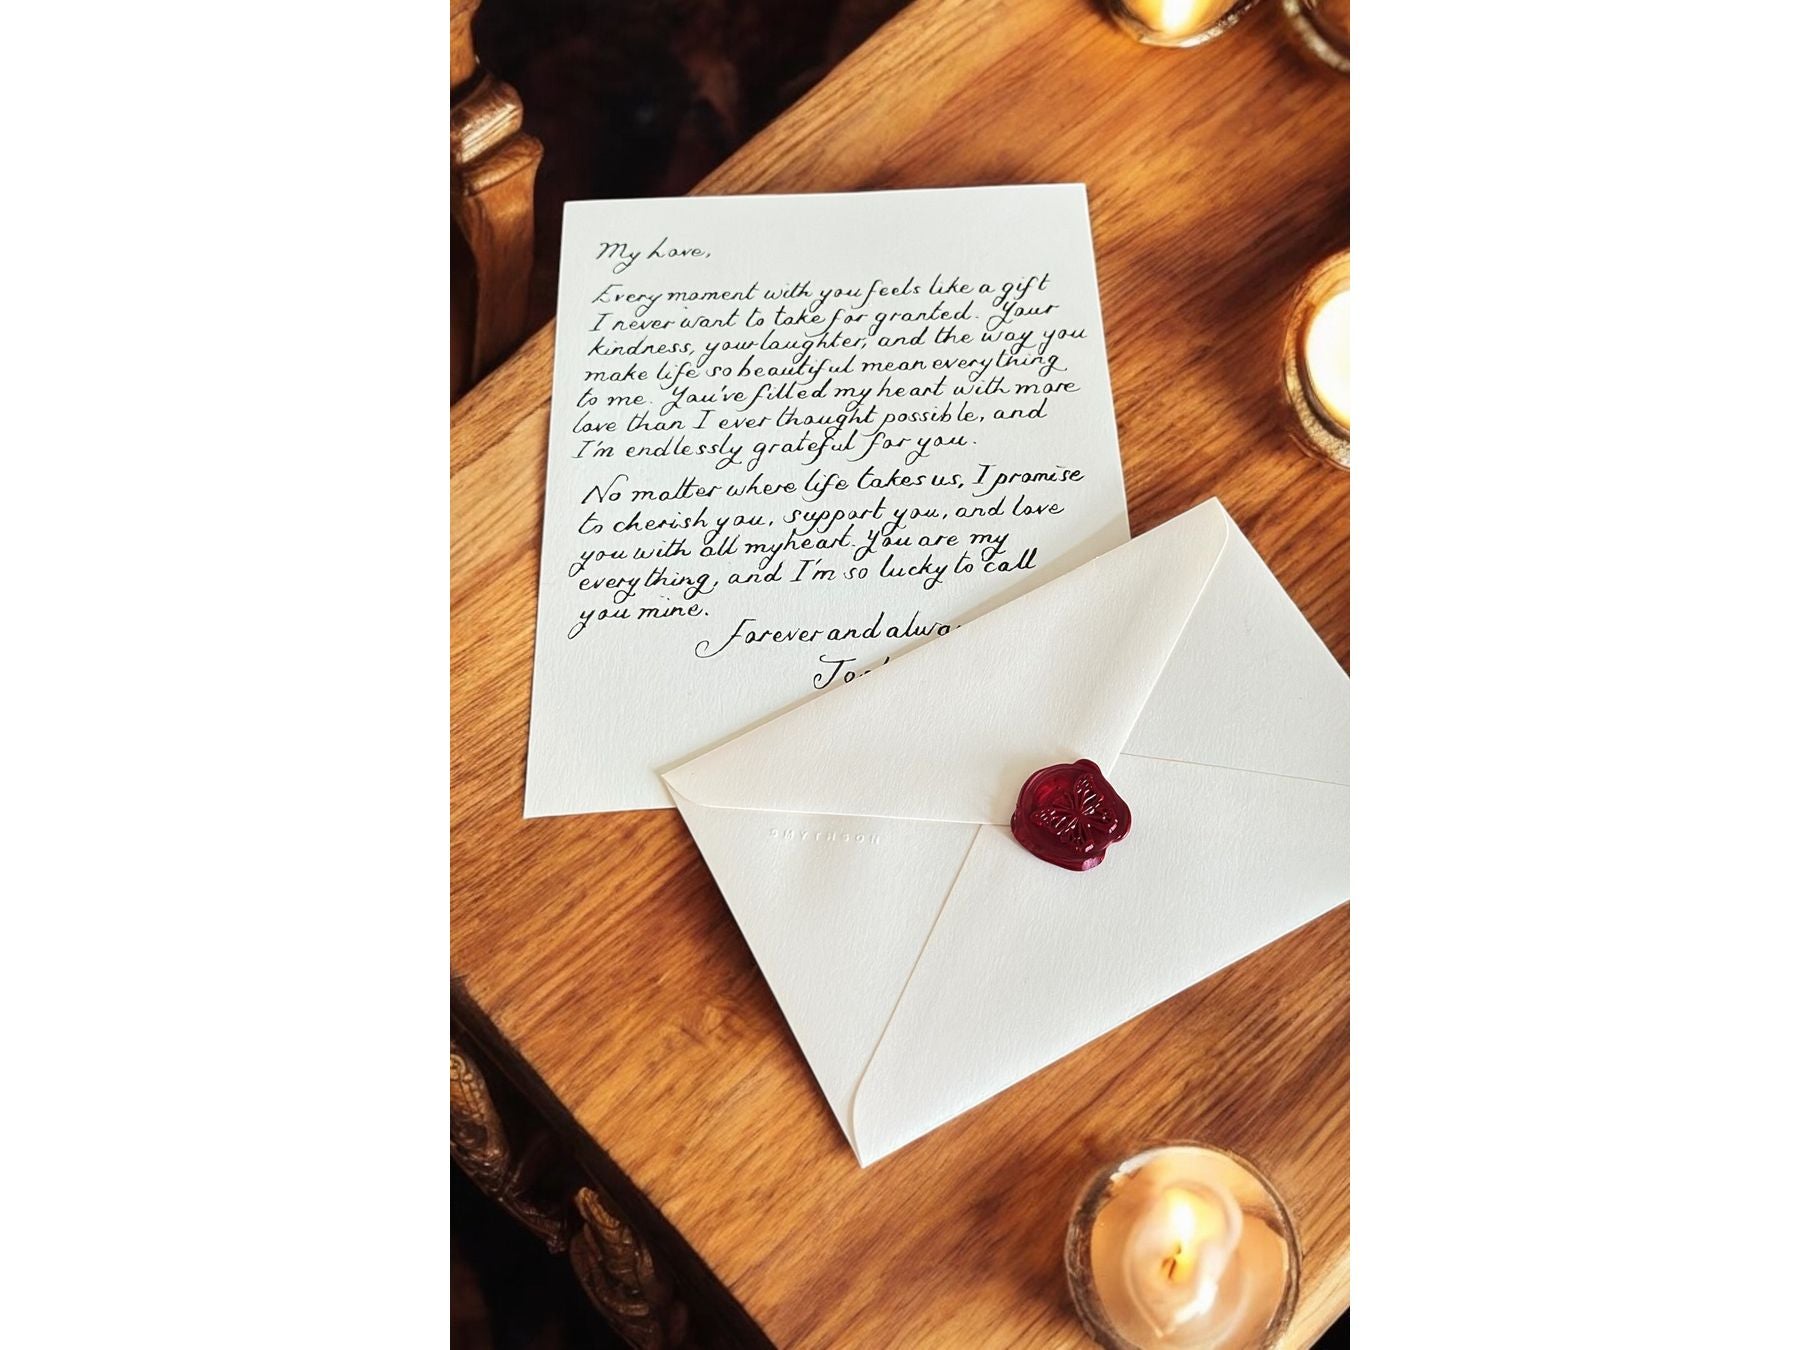 My Love,
Every moment with you feels like a gift
I never want to take for granted. Your
kindness, your laughter, and the way you
make life so beautiful mean everything
to me. You've filled my heart with more
love than I ever thought possible, and
I'm endlessly grateful for you.
No matter where life takes us, I promise
to cherish you, support you, and love
you with all my heart. You are my
everything, and I'm so lucky to call
you mine.
Forever and
SMYTHSON